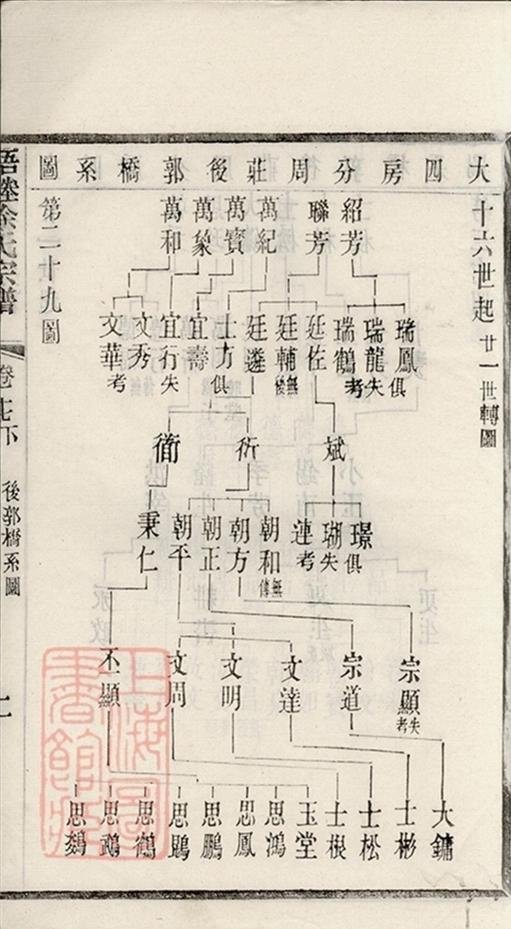 大四房分周莊後郭橋系圖
十六世起 廿一世轉圖
紹芳
聯芳
萬紀
萬寶
萬象
萬和
第二十九圖
瑞鳳俱
瑞龍失
瑞鶴考
廷佐
廷輔無後
廷遴
士方俱
宜壽
宜行失
文秀
文華考
斌
衍
衛
璟俱
瑚失
璉考
朝和無傳
朝方
朝正
朝平
秉仁
宗顯失考
宗道
文達
文明
文周
丕顯
大鏞
士彬
士松
士根
玉堂
思鴻
思鳳
思鵬
思鶴
余氏宗譜
卷七下
後郭橋系圖
上海圖書館藏